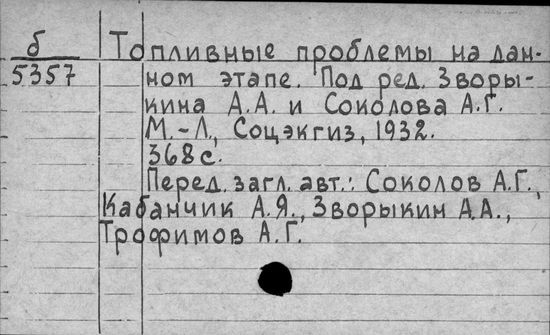 б Топливные проблемы на дан-
5357 ном этапе. Под ред. Зворы-
кина А.А. и Соколова А.Г.
М.-Л., Соцэкгиз, 1932.
368 с.
Перед. загл. авт.: Соколов А.Г.,
Кабанчик А.Я., Зворыкин А.А.,
Трофимов А.Г.